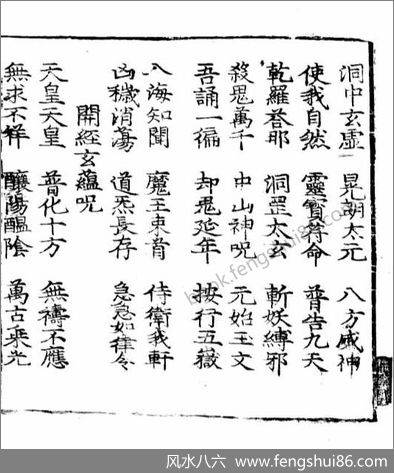 洞中玄虛 晃朝太元 八方威神
使我自然 靈寶符命 普告九天
乾羅荅那 洞罡太玄 斬妖縛邪
殺鬼萬千 中山神呪 元始玉文
吾誦一徧 却鬼延年 按行五嶽
八海知聞 魔王束首 侍衛我軒
凶穢消蕩 道炁長存 急急如律令
開經玄蘊呪
天皇天皇 普化十方 無禱不應
無求不祥 釀陽醞陰 萬古乘光
book.fengshui86.com
风水八六 www.fengshui86.com